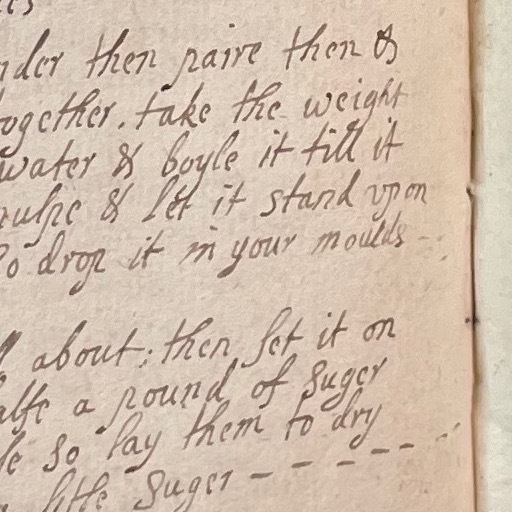 nder then paire then &
together. take the weight
water & boyle it till it
pulpe & let it stand upon
So drop it in your moulds -
about; then set it on
alfe a pound of Suger
le so lay them to dry
little Suger - - - - - -